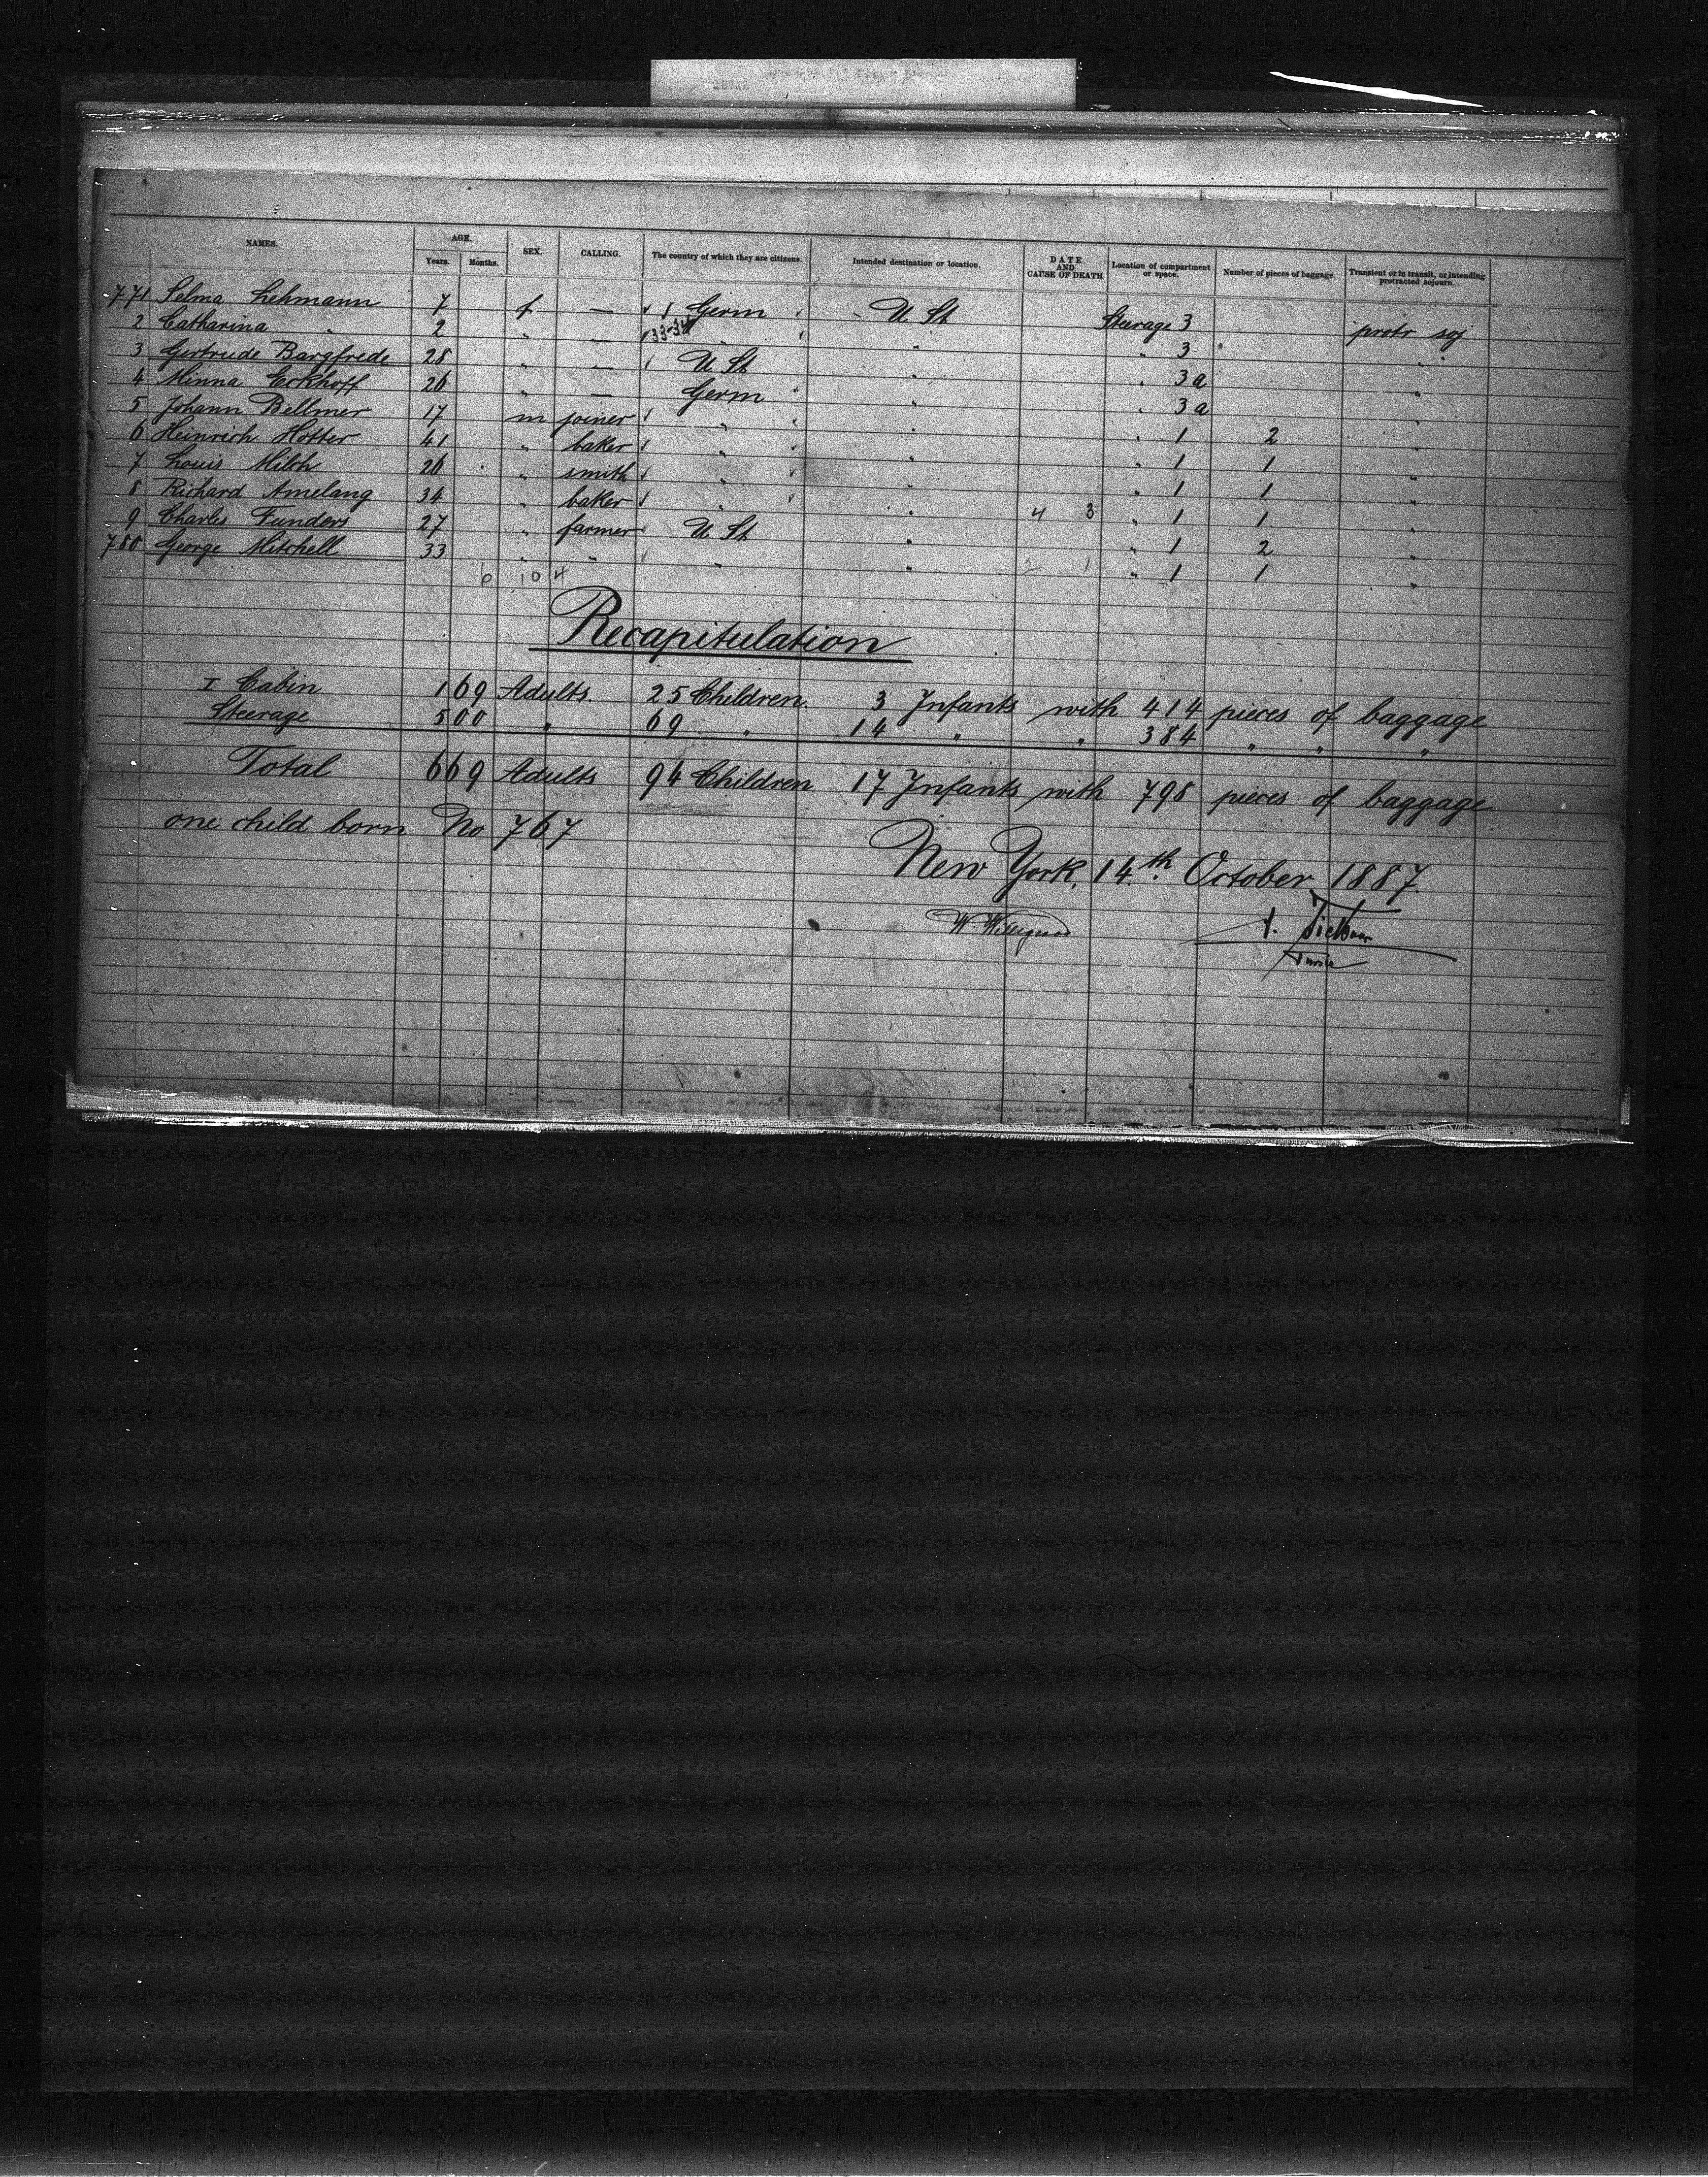 NAMES. AGE. Years. Months. SEX. CALLING. The country of which they are citizens. Intended destination or location. DATE AND CAUSE OF DEATH Location of compartment or space. Number of pieces of baggage. Transient or in transit, or intending protracted sojourn.
771 Selma Lehmann 7 f — 1 Germ U St Steerage 3 protr soj
2 Catharina " 2 " — 33-34 " " " 3 "
3 Gertrude Bargfrede 28 " — U St " " 3a "
4 Minna Eckhoff 26 " — Germ " " 3a "
5 Johann Bellmer 17 m joiner " " " 1 2 "
6 Heinrich Hotter 41 " baker " " " 1 1 "
7 Louis Milch 26 " smith " " " 1 1 "
8 Richard Amelang 34 " baker " " 4 3 " 1 1 "
9 Charles Funders 27 " farmer U St " " 1 2 "
780 George Mitchell 33 " " " " 2 1 " 1 1 "
6 10 4
Recapitulation
I Cabin 169 Adults. 25 Children. 3 Infants with 414 pieces of baggage
Steerage 500 " 69 " 14 " " 384 " " "
Total 669 Adults 94 Children 17 Infants with 798 pieces of baggage
one child born No 767
New York, 14th. October 1887.